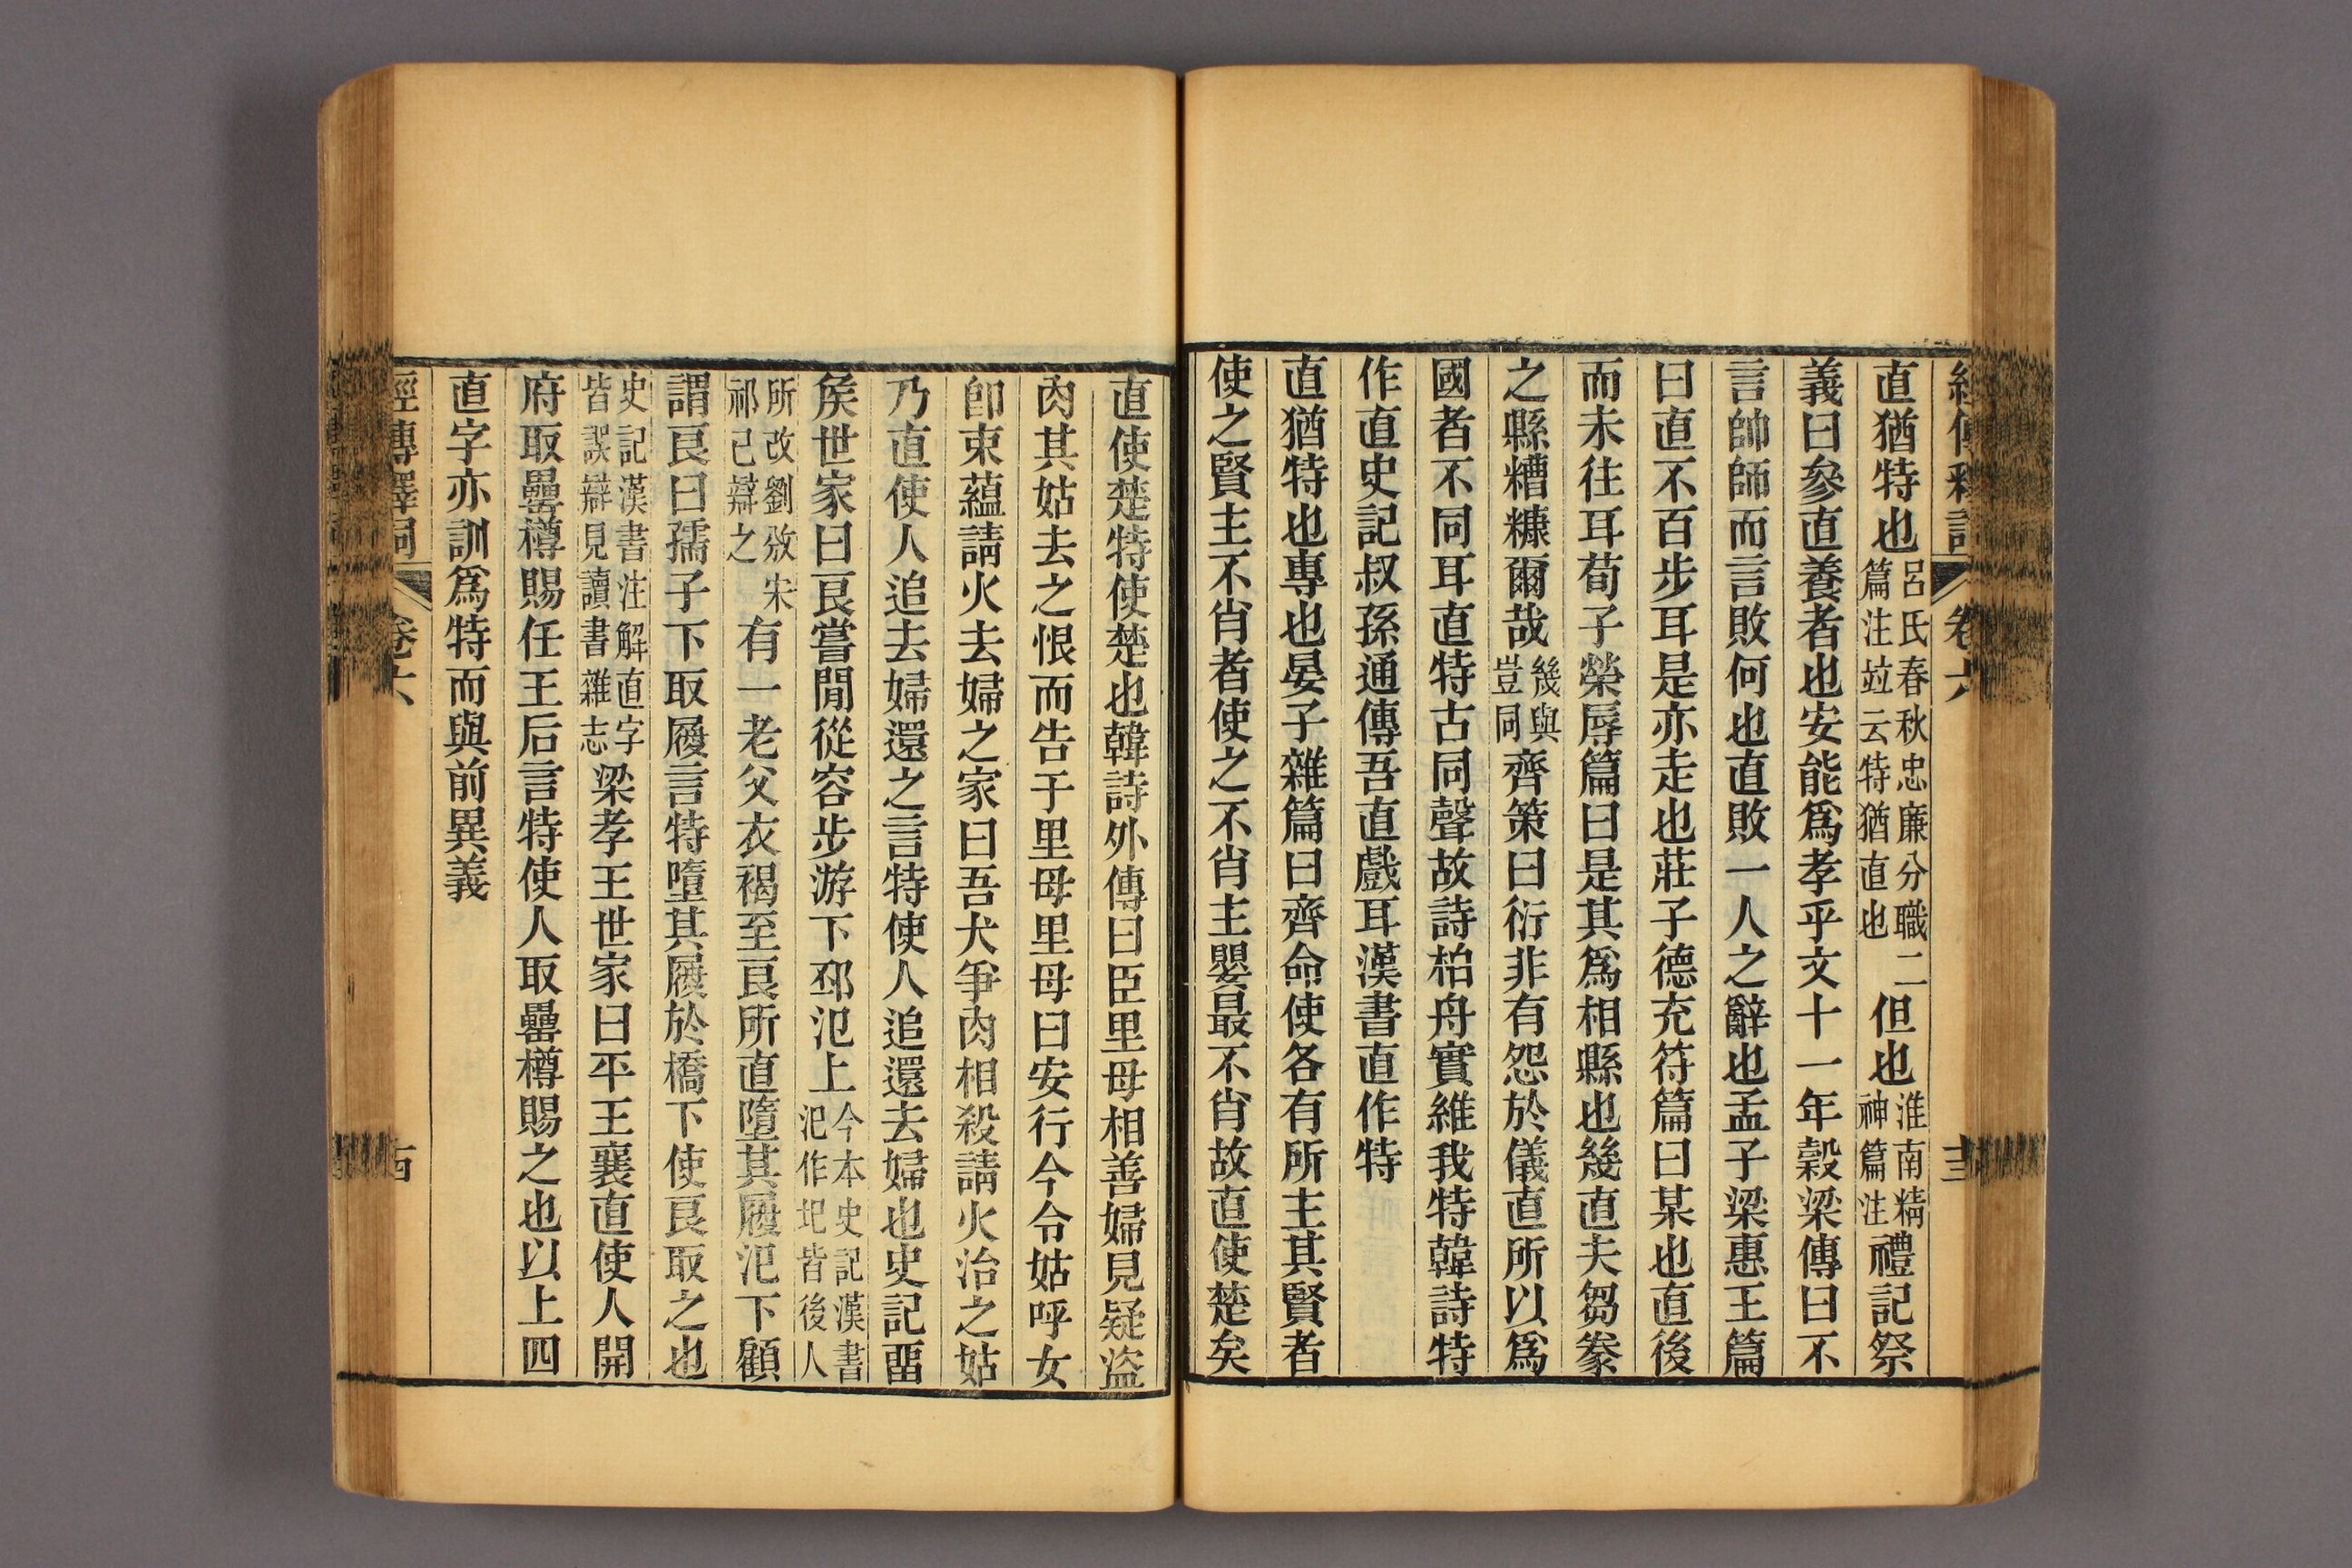 經傳釋詞 卷六 十三
直猶特也呂氏春秋忠廉分職二篇注竝云特猶直也但也淮南精神篇注禮記祭
義曰參直養者也安能爲孝乎文十一年穀梁傳曰不
言帥師而言敗何也直敗一人之辭也孟子梁惠王篇
曰直不百步耳是亦走也莊子德充符篇曰某也直後
而未往耳荀子榮辱篇曰是其爲相縣也幾直夫芻豢
之縣糟糠爾哉幾與豈同齊策曰衍非有怨於儀直所以爲
國者不同耳直特古同聲故詩柏舟實維我特韓詩特
作直史記叔孫通傳吾直戲耳漢書直作特
直猶特也專也晏子雜篇曰齊命使各有所主其賢者
使之賢主不肖者使之不肖主嬰最不肖故直使楚矣
直使楚特使楚也韓詩外傳曰臣里母相善婦見疑盜
肉其姑去之恨而告于里母里母曰安行今令姑呼女
卽束蘊請火去婦之家曰吾犬爭肉相殺請火治之姑
乃直使人追去婦還之言特使人追還去婦也史記畱
矦世家曰良嘗閒從容步游下邳汜上今本史記漢書汜作圯皆後人
所改劉攽宋祁已辯之有一老父衣褐至良所直墮其履汜下顧
謂良曰孺子下取履言特墮其履於橋下使良取之也
史記漢書注解直字皆誤辯見讀書雜志梁孝王世家曰平王襄直使人開
府取罍樽賜任王后言特使人取罍樽賜之也以上四
直字亦訓爲特而與前異義
經傳釋詞 卷六 十四